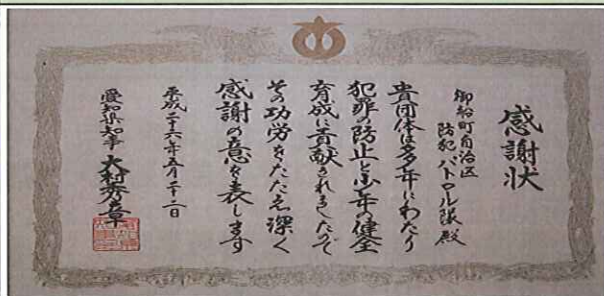 感謝状
御船町自治区
防犯パトロール隊 殿
貴団体は多年にわたり
犯罪の防止と少年の健全
育成に貢献されましたので
その功労をたたえ深く
感謝の意を表します
平成二十六年五月二十二日
愛知県知事 大村秀章